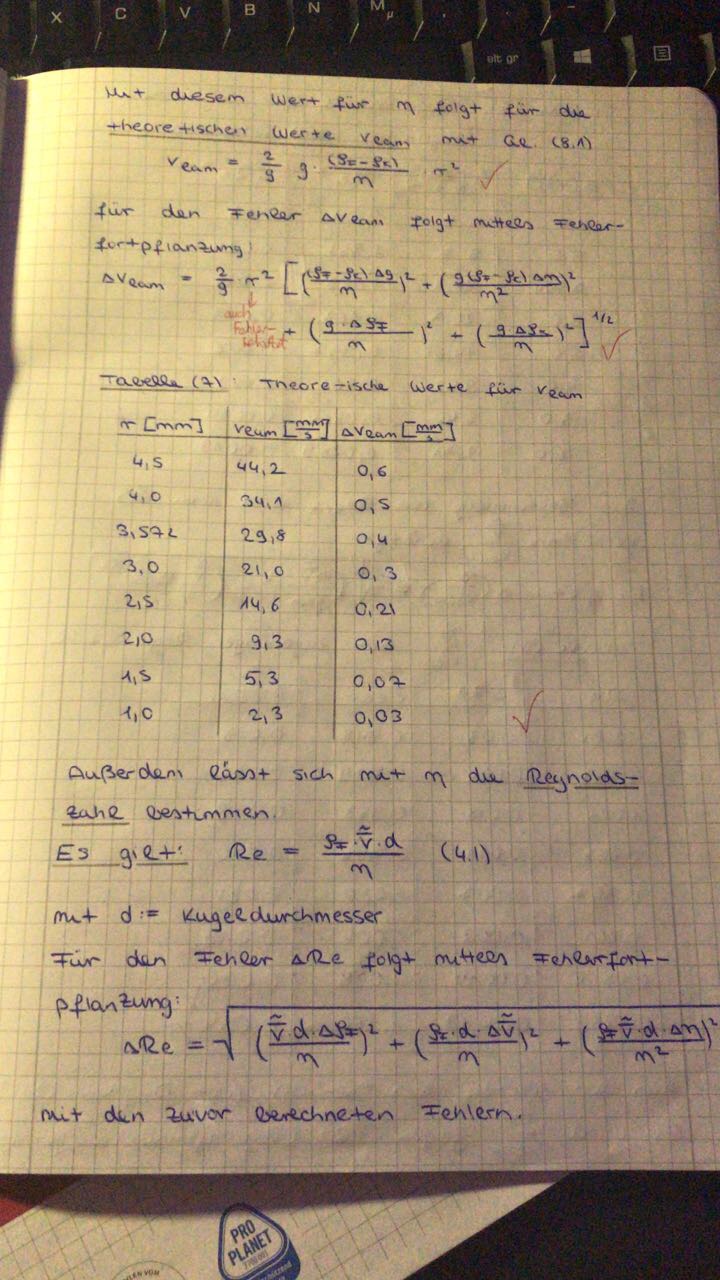 X C V B N M µ ; , : . -
alt gr
Mit diesem Wert für η folgt für die
theoretischen Werte v_lam mit Gl. (8.1)
v_lam = 2/9 g · (ρ_F - ρ_K)/η · r² ✓
für den Fehler Δv_lam folgt mittels Fehler-
fortpflanzung:
Δv_lam = 2/9 · r² [ ((ρ_F - ρ_K) · Δg / η)² + (g(ρ_F - ρ_K) Δη / η²)²
auch
Fehler-
behaftet
+ (g · Δρ_F / η)² + (g · Δρ_K / η)² ]^1/2 ✓
Tabelle (7): Theoretische Werte für v_lam
r [mm] v_lam [mm/s] Δv_lam [mm/s]
4,5 44,2 0,6
4,0 34,1 0,5
3,572 29,8 0,4
3,0 21,0 0,3
2,5 14,6 0,21
2,0 9,3 0,13
1,5 5,3 0,07
1,0 2,3 0,03 ✓
Außerdem lässt sich mit η die Reynolds-
zahl bestimmen.
Es gilt: Re = ρ_F · ṽ̄ · d / η (4.1)
mit d := Kugeldurchmesser
Für den Fehler ΔRe folgt mittels Fehlerfort-
pflanzung:
ΔRe = √( (ṽ̄ · d · Δρ_F / η)² + (ρ_F · d · Δṽ̄ / η)² + (ρ_F ṽ̄ · d · Δη / η²)²
mit den zuvor berechneten Fehlern.
PRO
PLANET